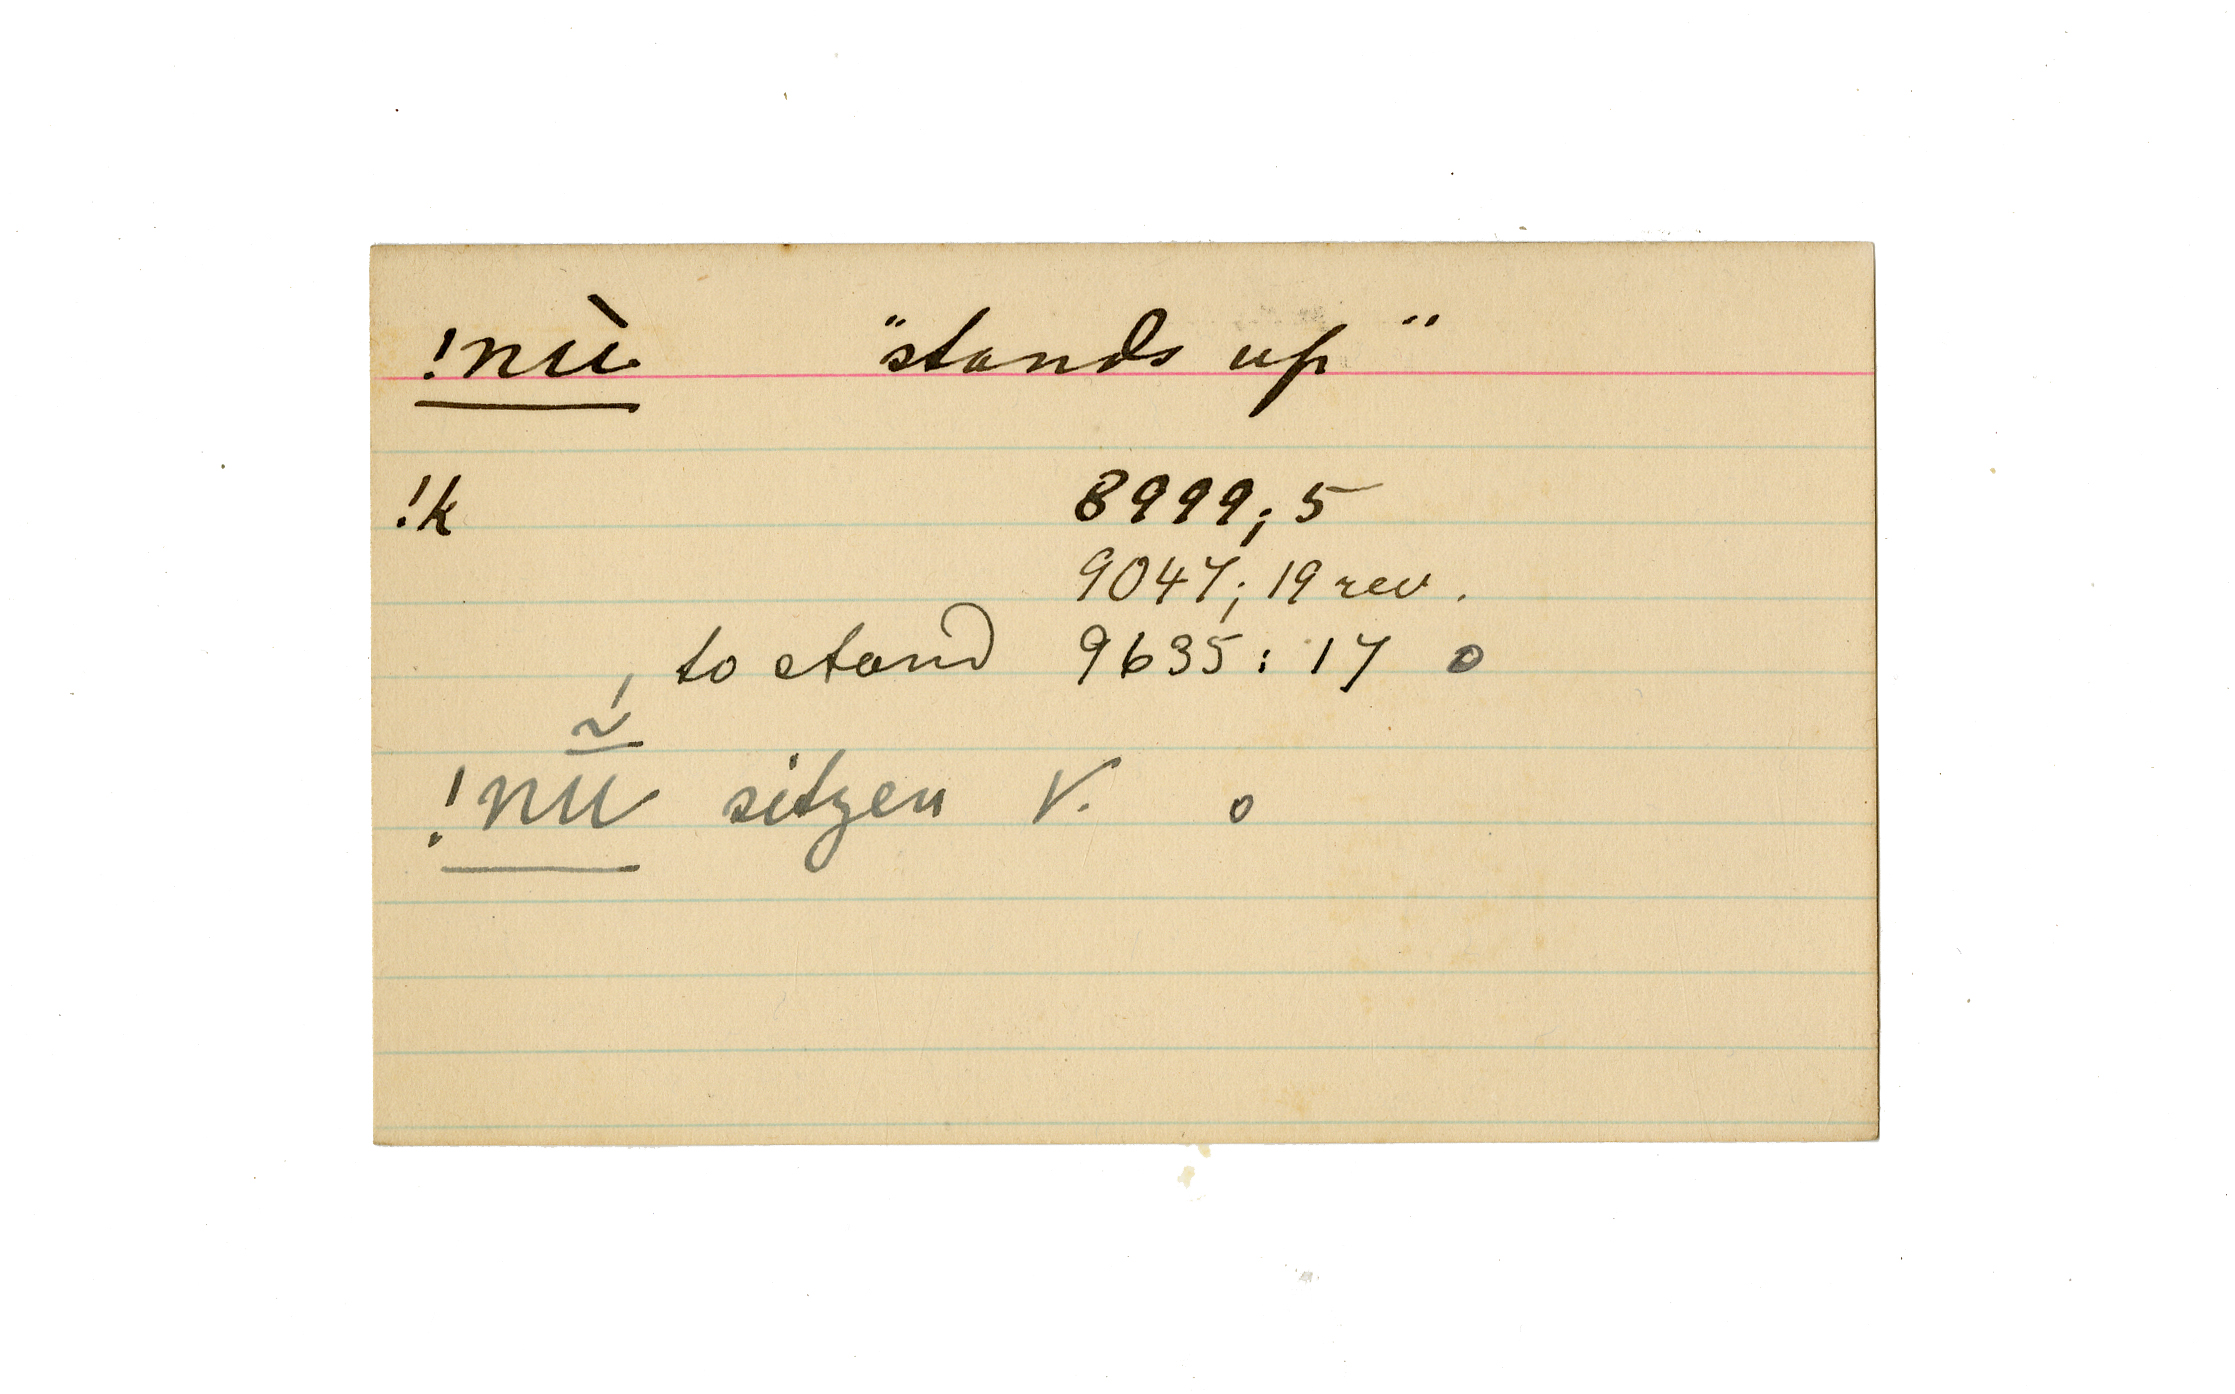 !nù "stands up"
!k 8999; 5
9047; 19 rev.
to stand 9635: 17 o
!nū̃́ sitzen V. o